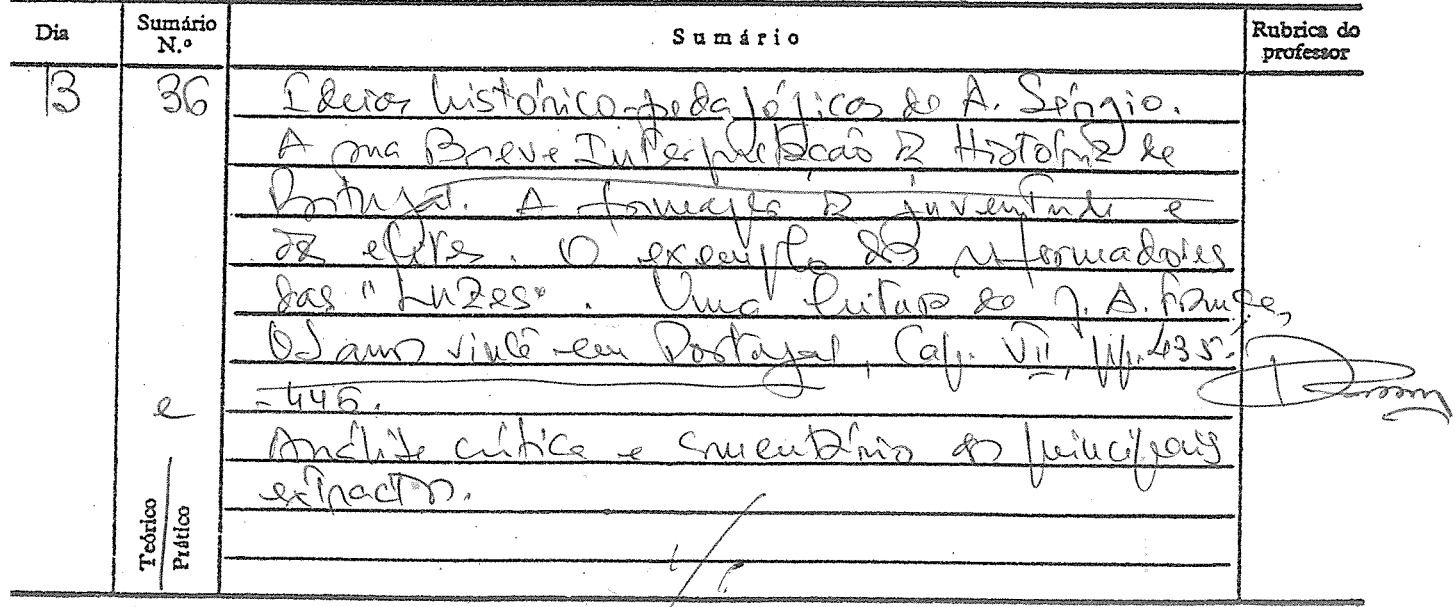 Dia
Sumário N.º
Sumário
Rubrica do professor
13
36
Ideias histórico-pedagógicas de A. Sérgio.
A sua Breve Interpretação da História de
Portugal. A formação da juventude e
das elites. O exemplo dos reformadores
das "Luzes". Uma leitura de J. A. França,
Os anos vinte em Portugal, Cap. VII, pp. 435-
-446.
e
Análise crítica e comentário dos principais
extractos.
Teórico
Prático